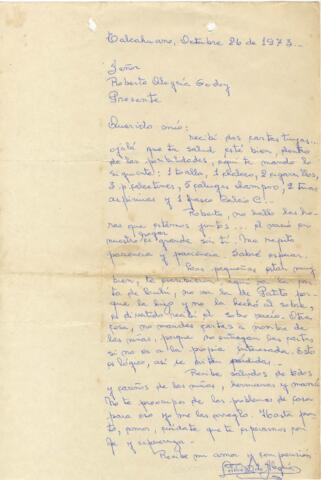 Talcahuano, Octubre 26 de 1973..
Señor
Roberto Alegría Godoy
Presente
Querido mío:
recibí dos cartas tuyas...
ojalá que tu salud esté bien, dentro
de las posibilidades, aquí te mando lo
siguiente: 1 toalla, 1 2 cigarrillos,
3 p. calcetines, 5 1 shampoo, 2 tiras
aspirinas y 1 frasco Calcio C...
Roberto, no hallo las ho-
ras que estemos juntos... el vacío en
nuestro hogar es grande sin ti. Me repito
paciencia y paciencia. Sabré esperar.
Las pequeñas están muy
bien, te la car-
ta de no sé de Patito por-
que la hizo y no la hechó al sobre,
el sobre vacío. Otra
cosa, no mandes cartas a nombre de
las niñas, porque no entregan las cartas
si no es a la propia interesada. Esto
es lógico, así se perdidas.
Recibe saludos de todos
y cariños de las niñas, hermanas y mamá
No te preocupes de los problemas de casa
para eso yo me las arreglo. Hasta pron-
to, amor, cuídate que te esperamos con
fe y esperanza.
Recibe mi amor y comprensión